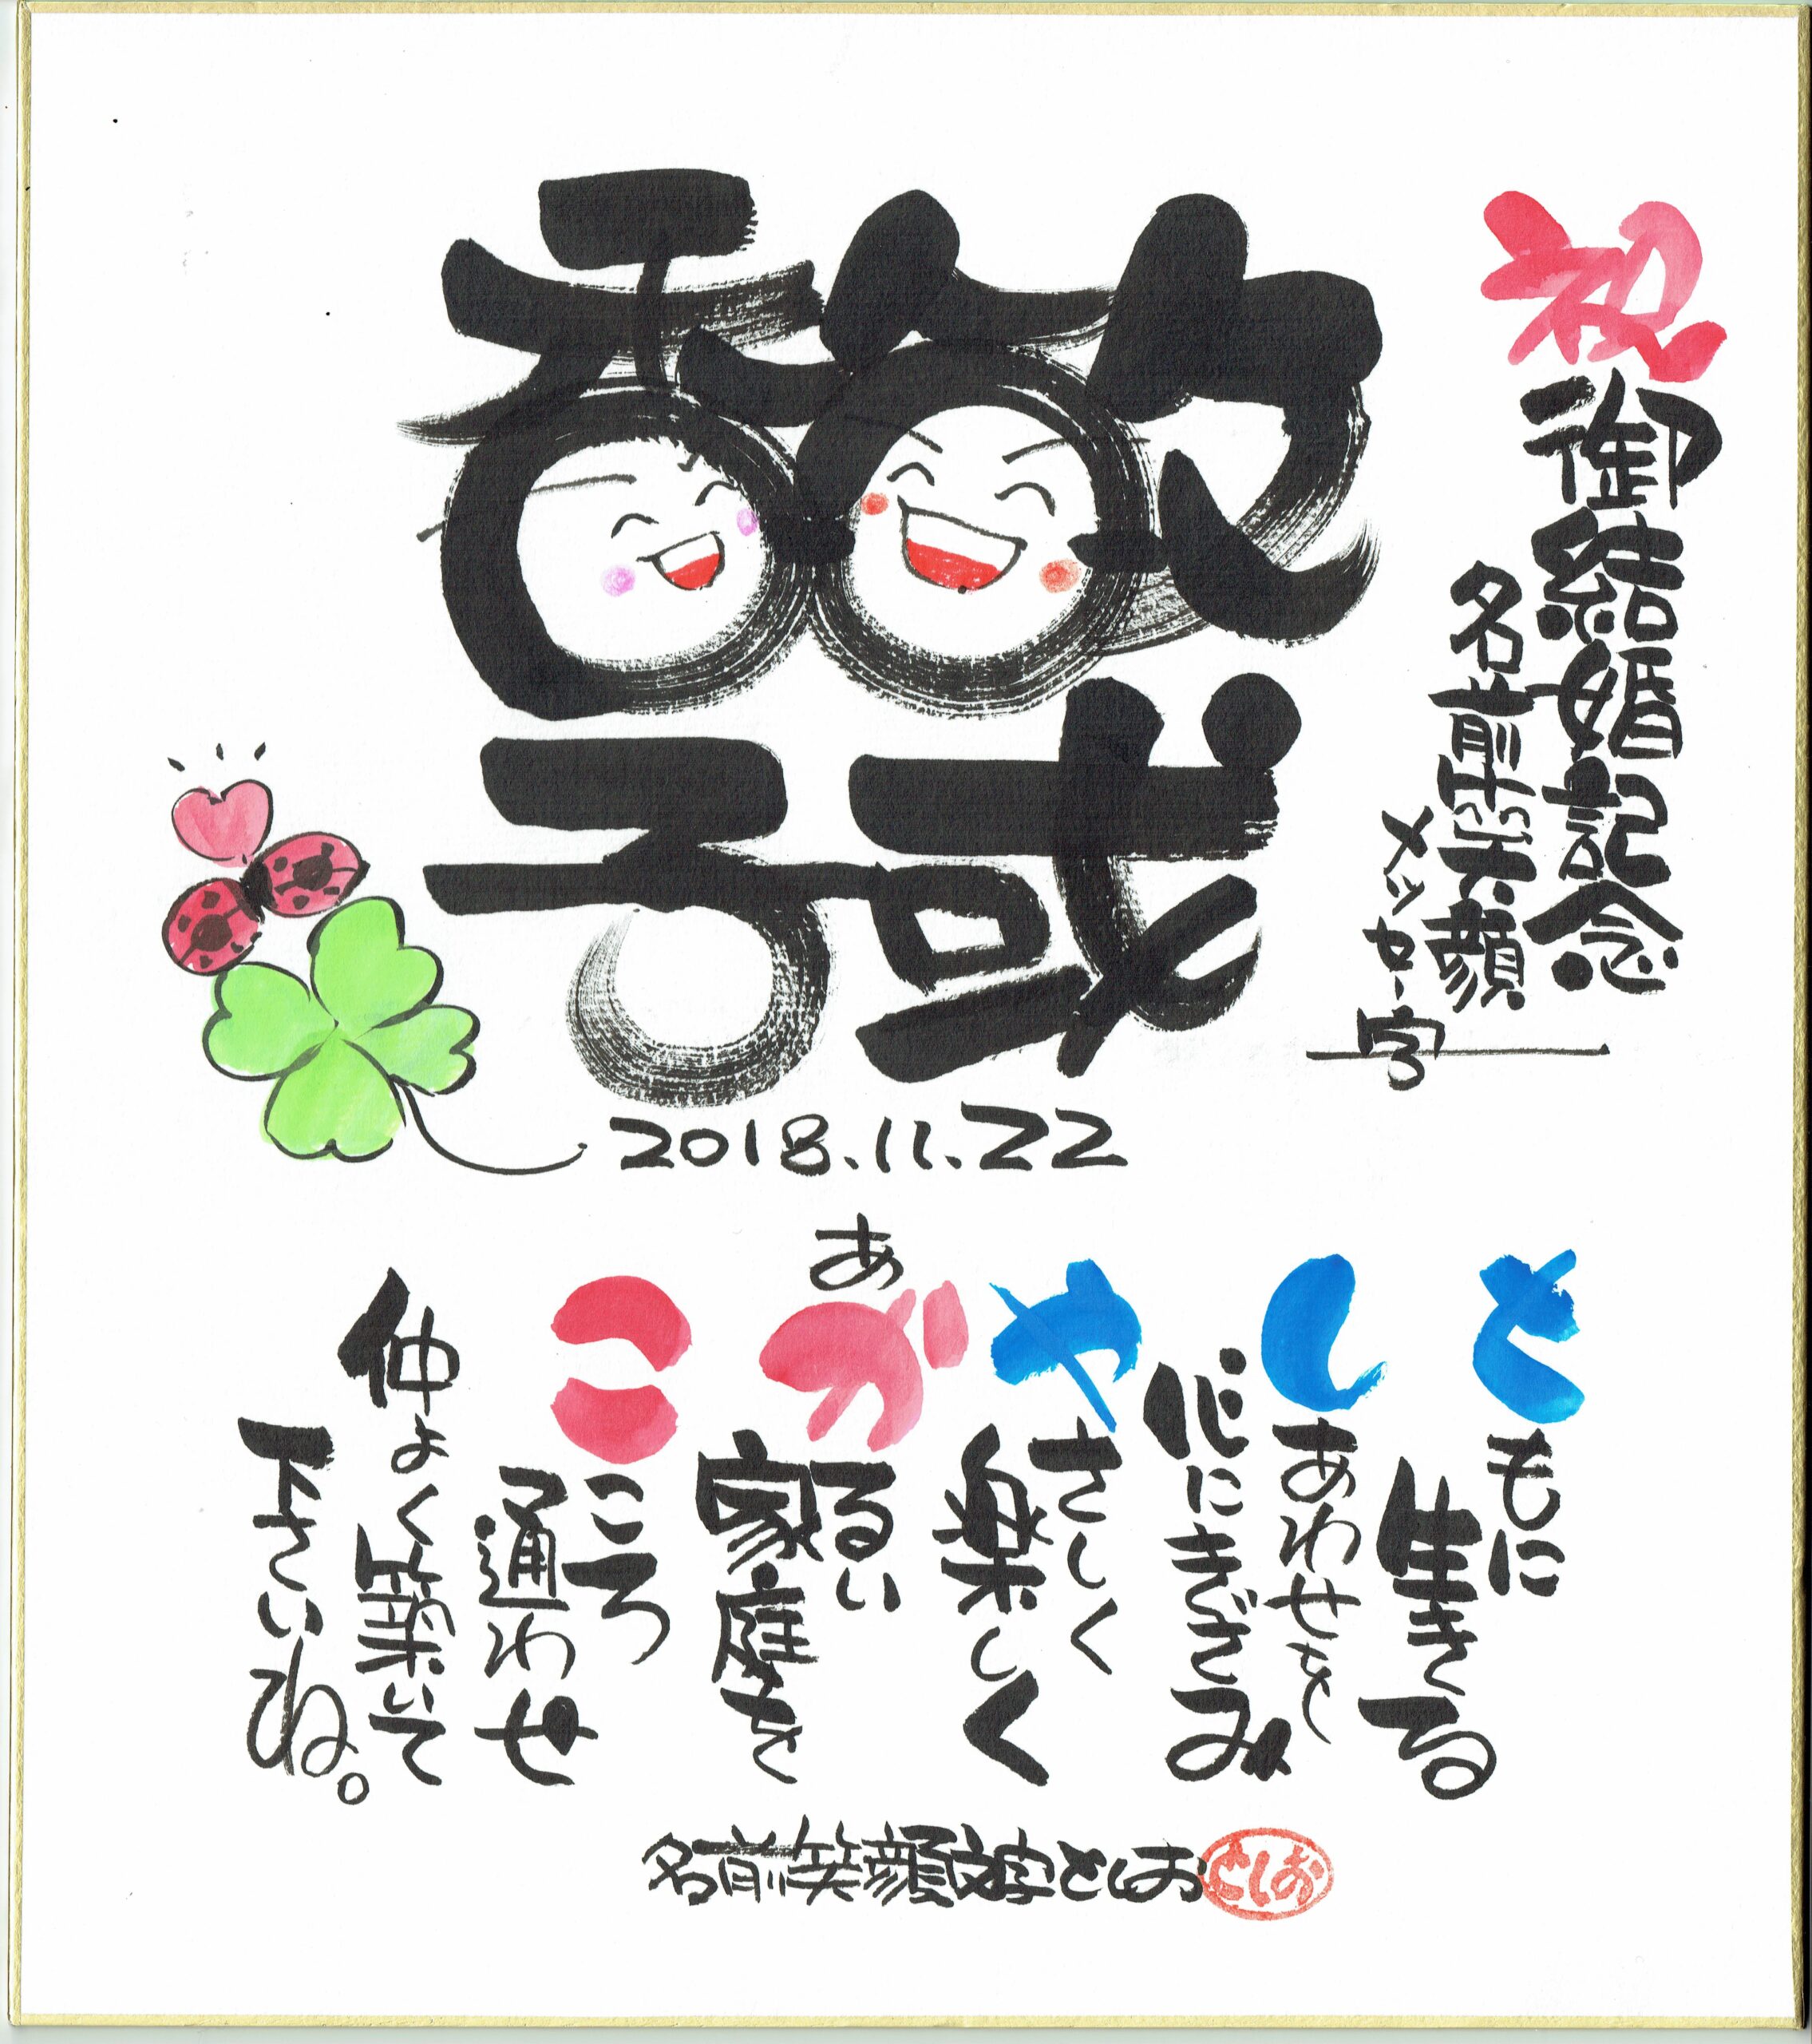 祝御結婚記念
名前笑顔
メッセー字
香子
2018.11.22
ともに
生きる
しあわせを
心にきざみ
やさしく
楽しく
あかるい
家庭を
こころ
通わせ
仲よく築いて
下さいね。
名前笑顔文字としお
としお